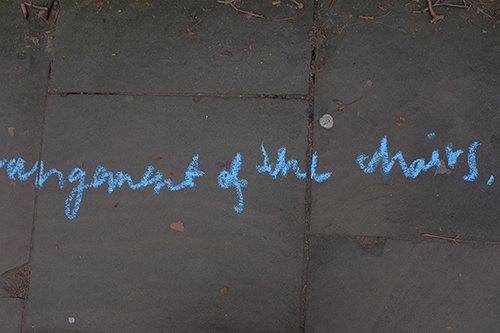 rangement of the chairs.